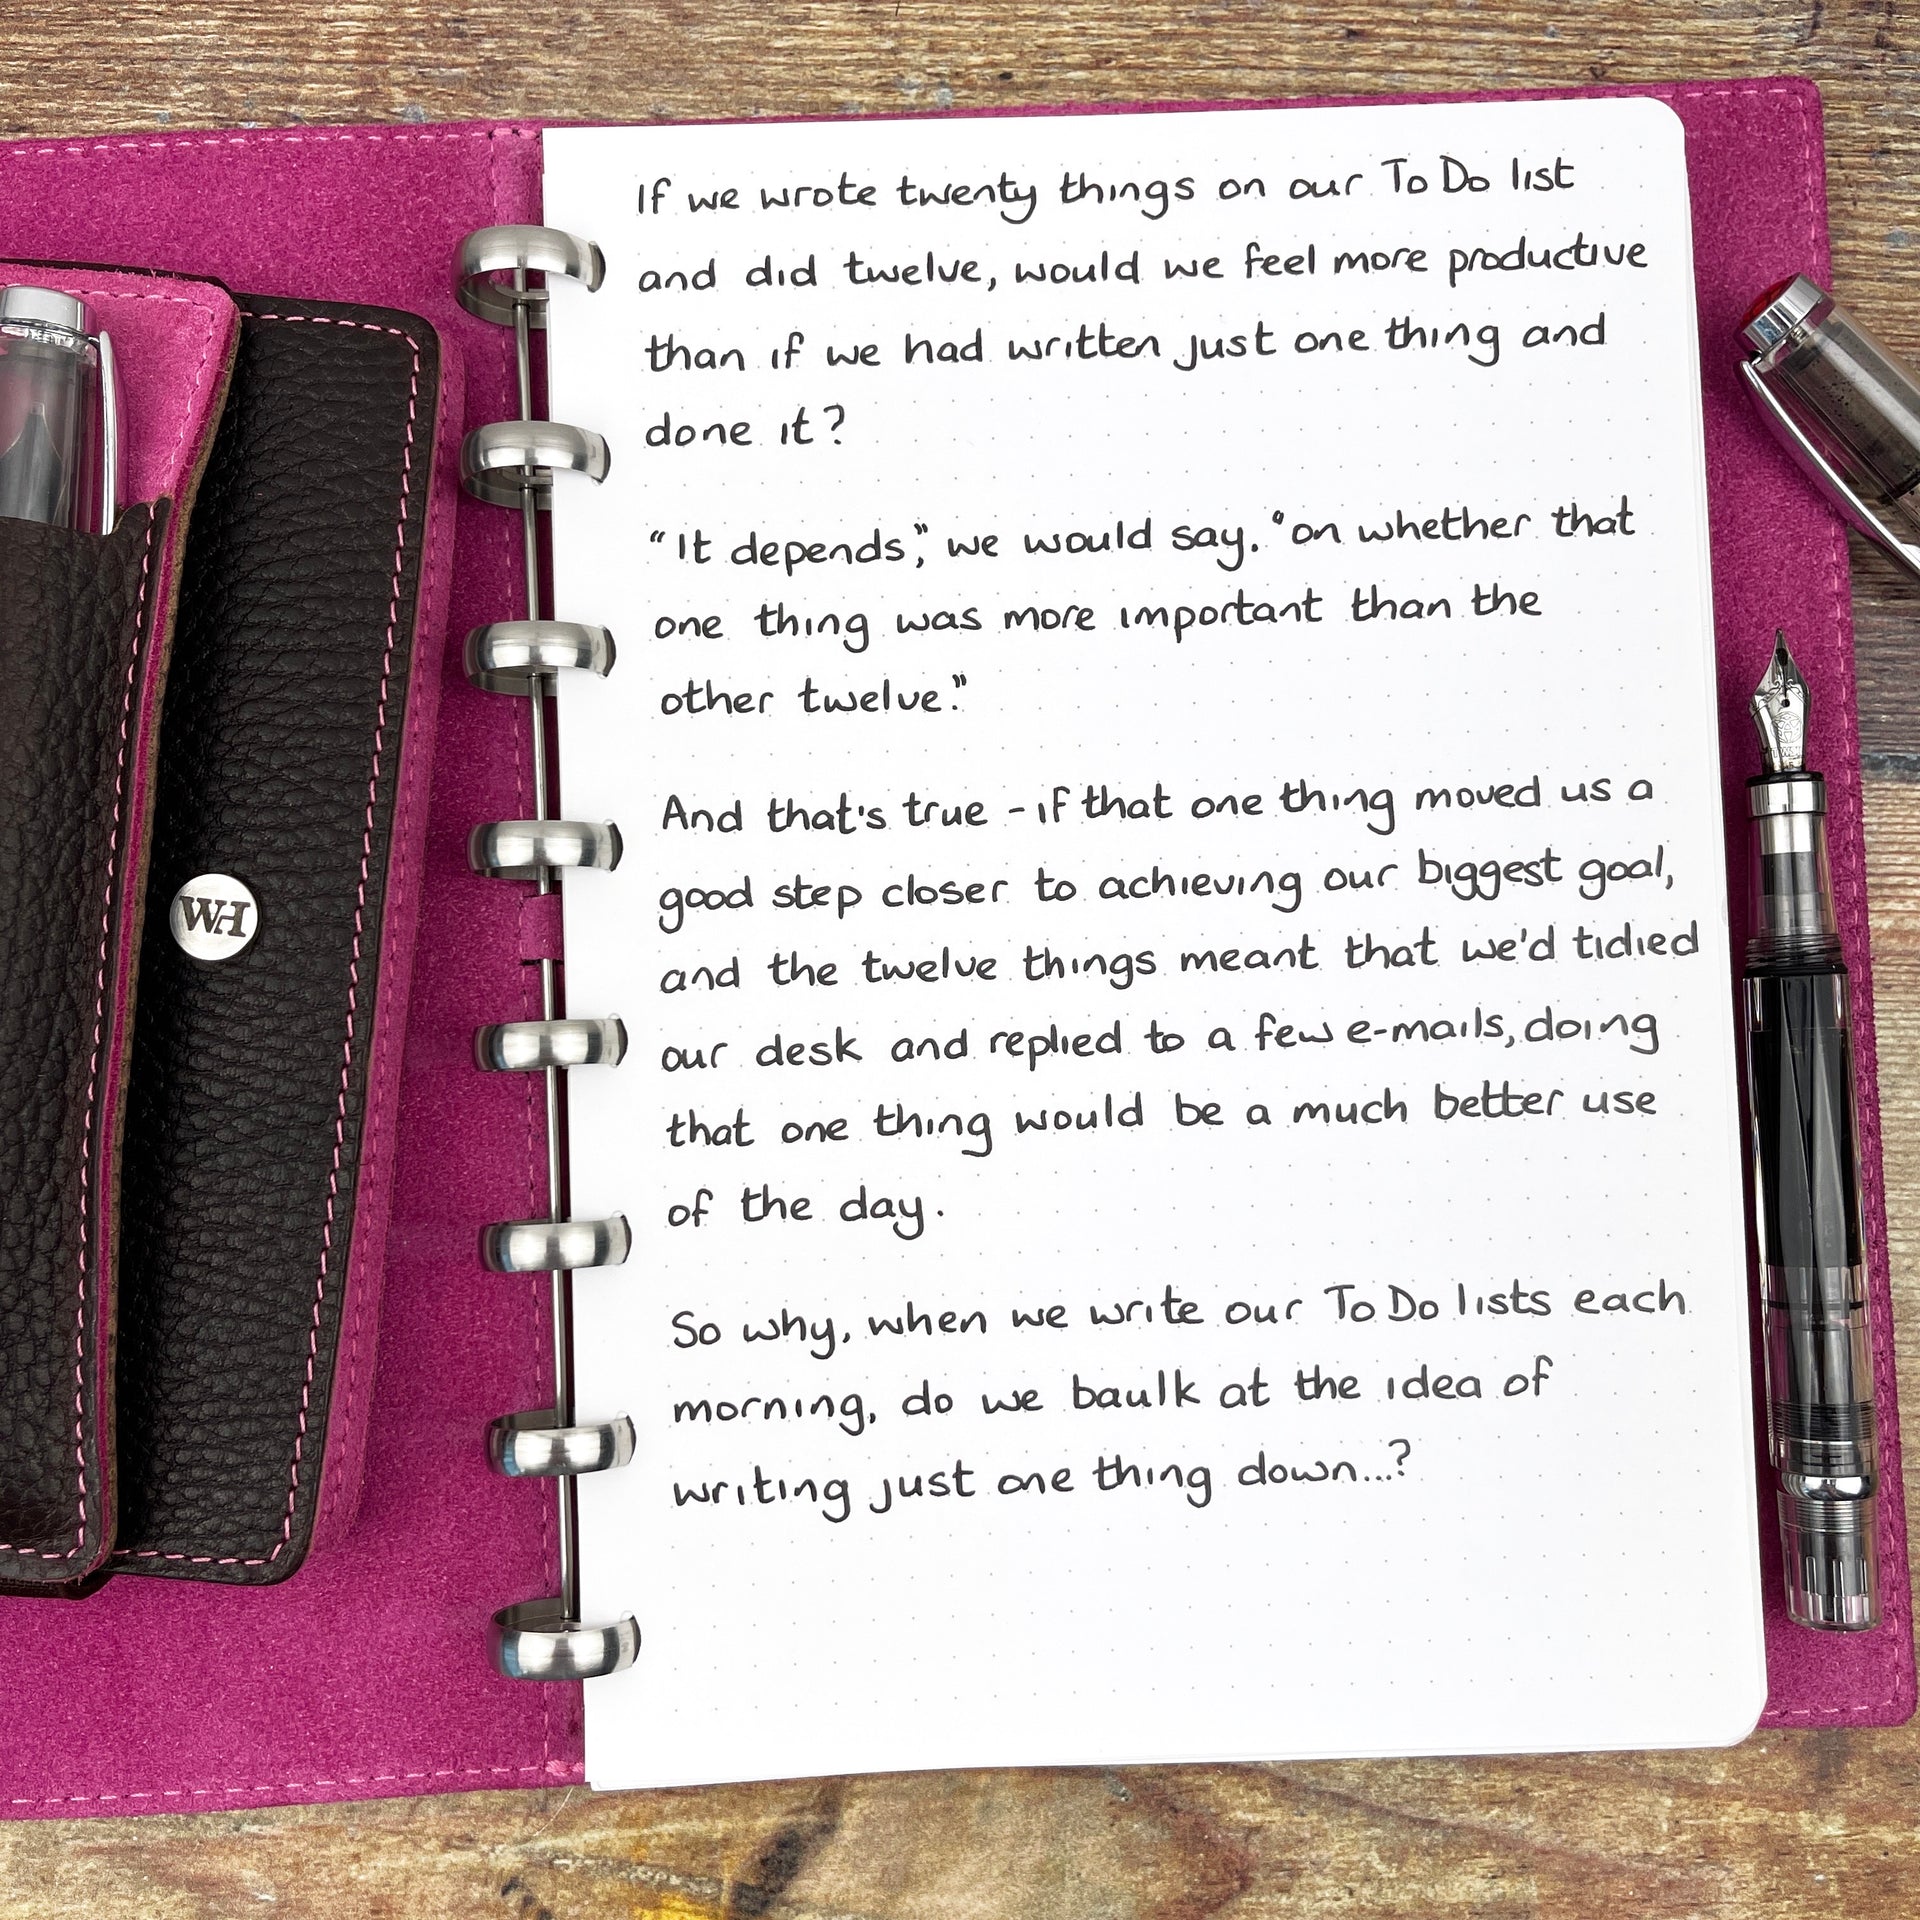 If we wrote twenty things on our To Do list
and did twelve, would we feel more productive
than if we had written just one thing and
done it?
"It depends," we would say, "on whether that
one thing was more important than the
other twelve."
And that's true - if that one thing moved us a
good step closer to achieving our biggest goal,
and the twelve things meant that we'd tidied
our desk and replied to a few e-mails, doing
that one thing would be a much better use
of the day.
So why, when we write our To Do lists each
morning, do we baulk at the idea of
writing just one thing down...?
WH